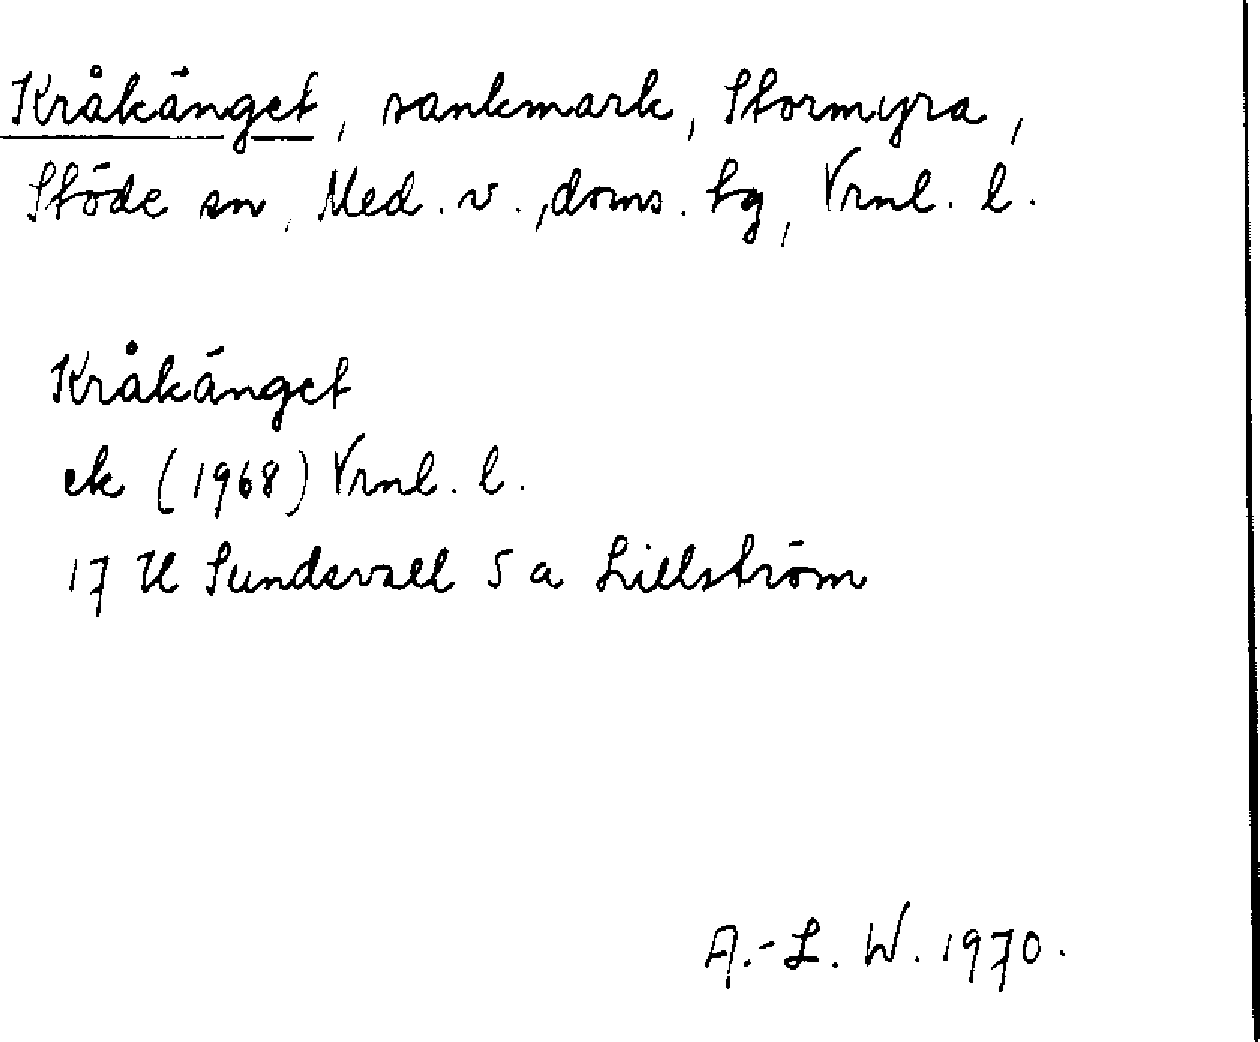 Kråkänget, sankmark, Stormyra,
Stöde sn, Med. v., doms. tg, Vrnl. l.
Kråkänget
ek (1968) Vrnl. l.
17 H Sundsvall 5 a Lillström
A.-L. W. 1970.